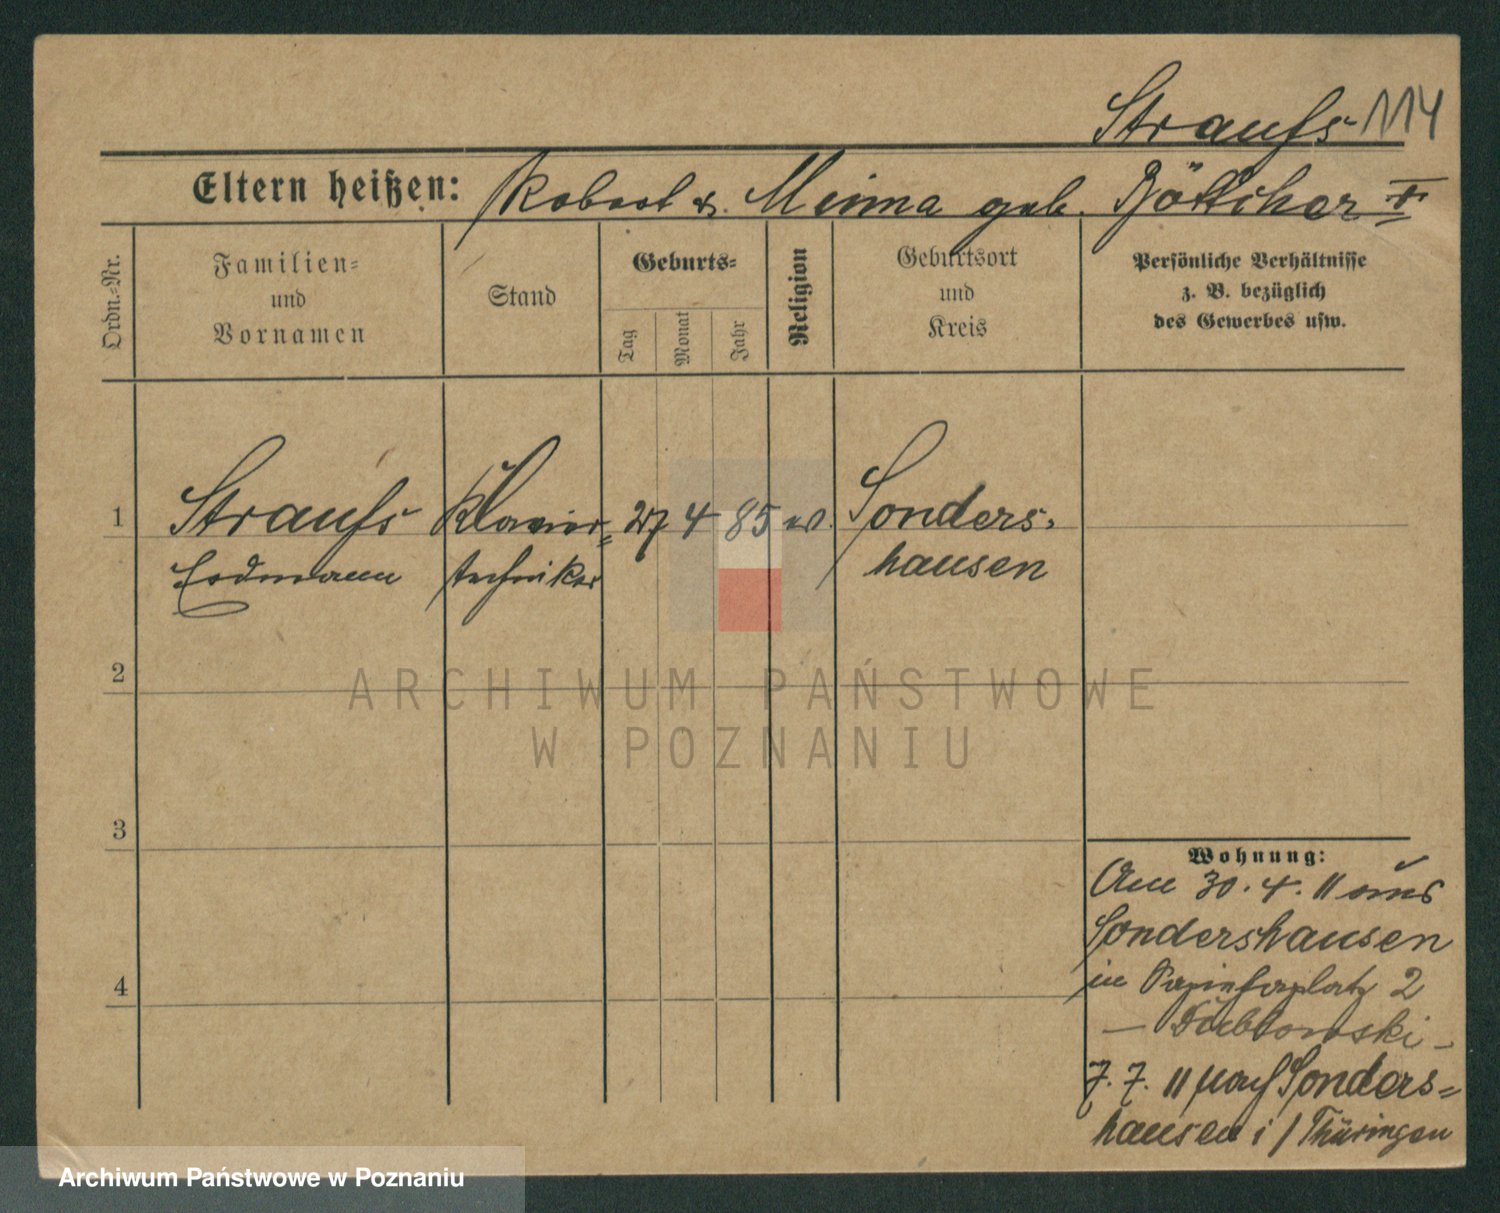 Straufs 114
Eltern heißen: Robert u. Minna geb. Böttcher
Ordn.-Nr.
Familien-
und
Vornamen
Stand
Geburts-
Tag
Monat
Jahr
Religion
Geburtsort
und
Kreis
Persönliche Verhältnisse
z. B. bezüglich
des Gewerbes usw.
1 Straufs Klavier- 27 4 85 ev. Sonders-
Erdmann techniker hausen
2
3
4
Wohnung:
Am 30.4.11 aus
Sondershausen
in 2
— Dubrowski —
7.7.11 nach Sonders-
hausen i/Thüringen
ARCHIWUM PAŃSTWOWE
W POZNANIU
Archiwum Państwowe w Poznaniu